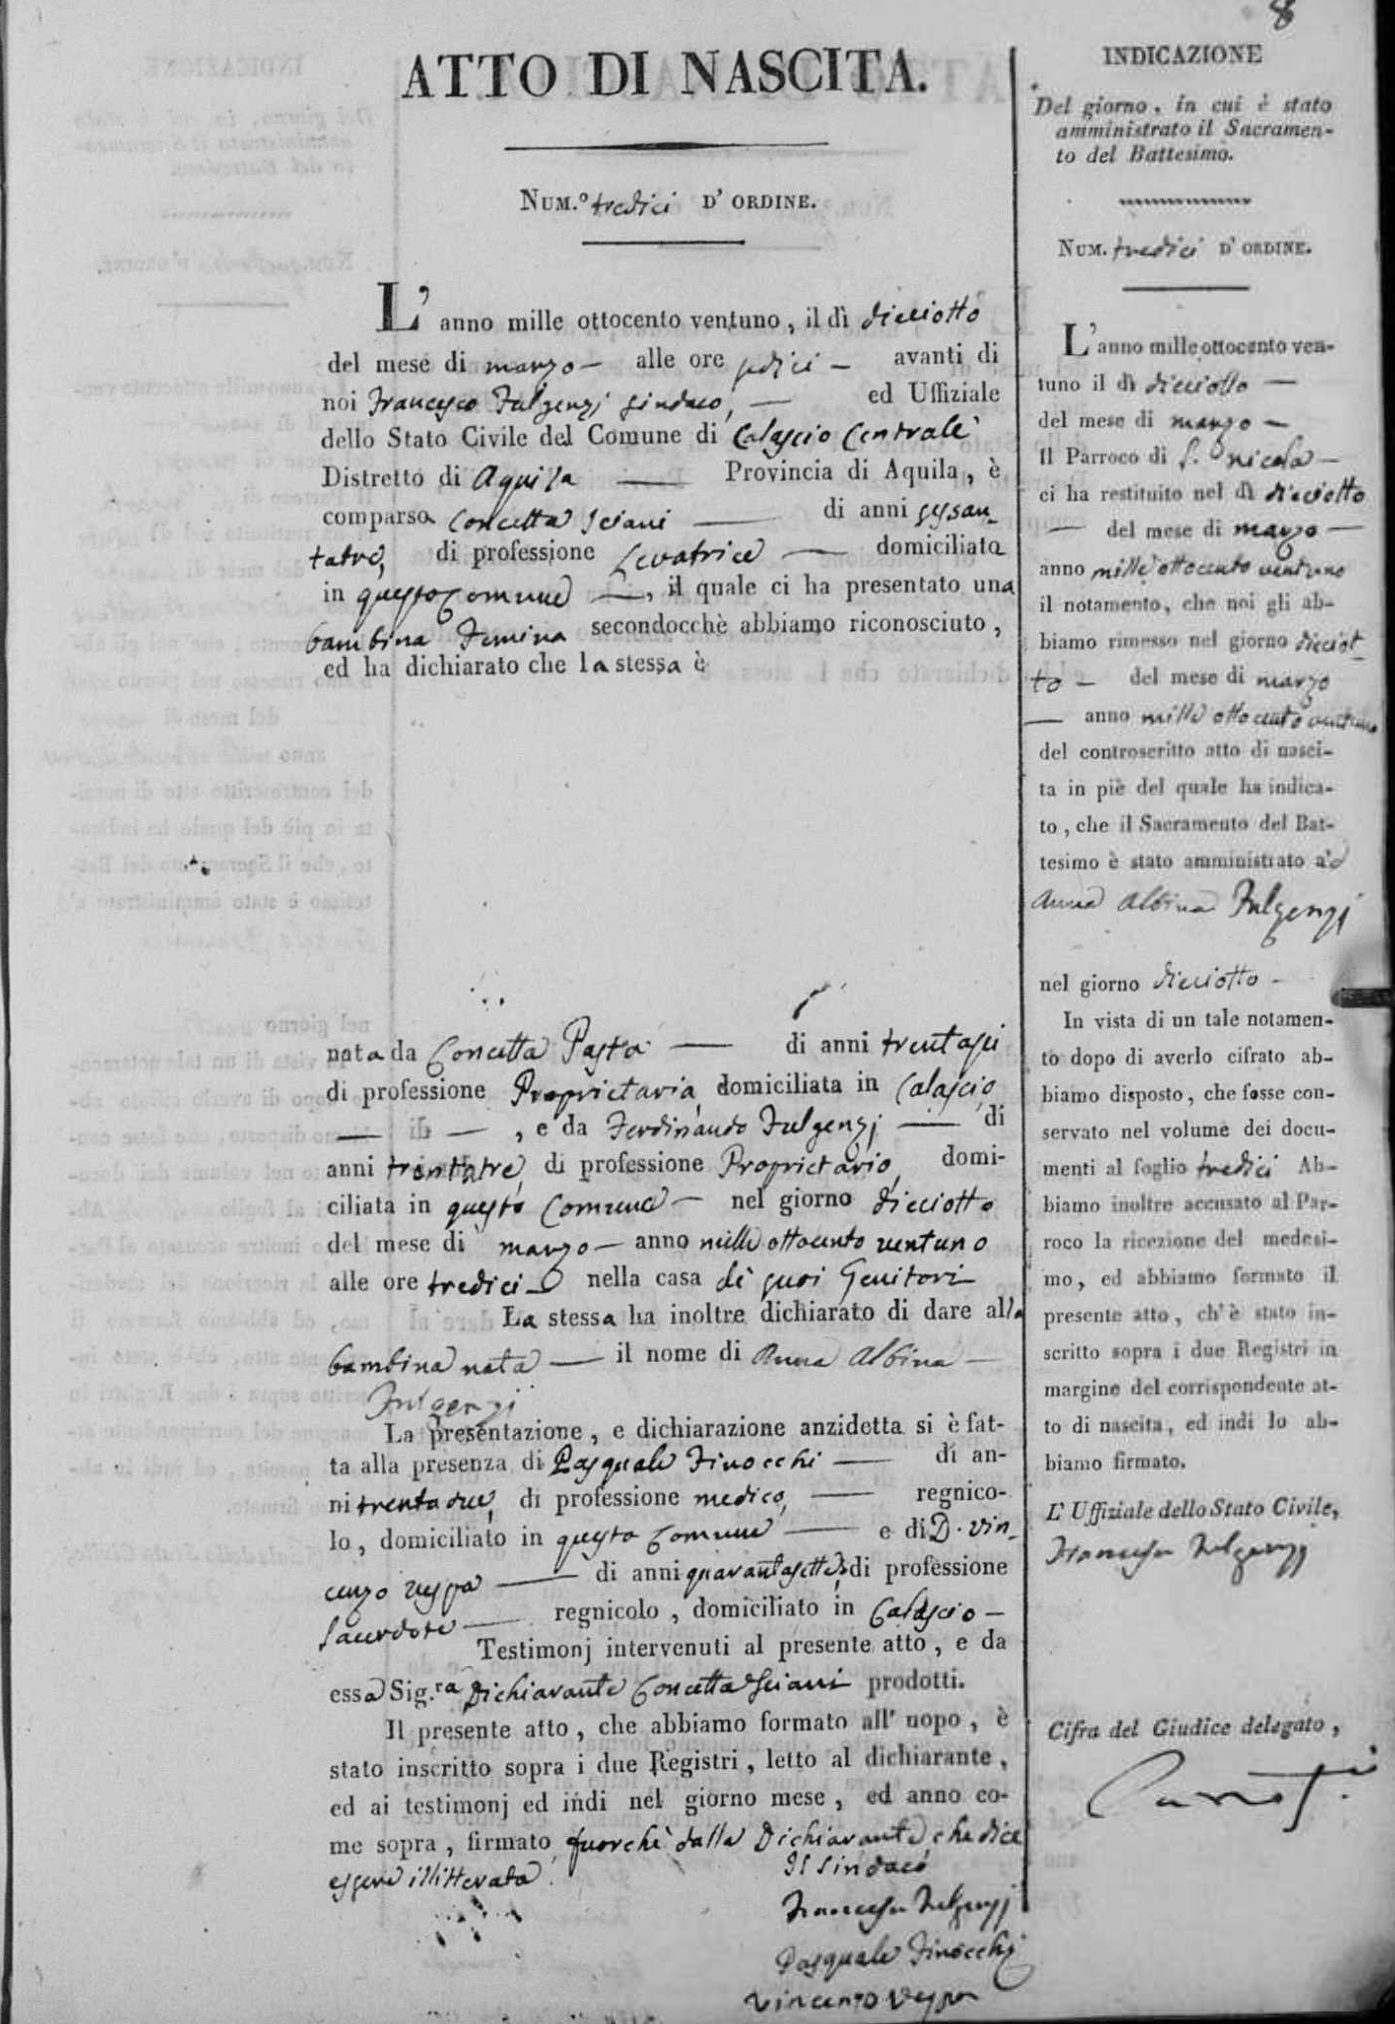 8
ATTO DI NASCITA.
NUM.° tredici D' ORDINE.
L' anno mille ottocento ventuno, il dì dieciotto
del mese di marzo — alle ore sedici — avanti di
noi Francesco Fulgenzj sindaco, — ed Uffiziale
dello Stato Civile del Comune di Calascio Centrale
Distretto di Aquila — Provincia di Aquila, è
comparsa Concetta Sciani — di anni sessan-
tatre, di professione Levatrice — domiciliata
in questo Comune —, il quale ci ha presentato una
bambina Femina secondocchè abbiamo riconosciuto,
ed ha dichiarato che la stessa è
nata da Concetta Pasta — di anni trentasei
di professione Proprietaria, domiciliata in Calascio
— di —, e da Ferdinando Fulgenzj — di
anni trentatre, di professione Proprietario, domi-
ciliata in questo Comune — nel giorno dieciotto
del mese di marzo — anno mille ottocento ventuno
alle ore tredici — nella casa de suoi Genitori
La stessa ha inoltre dichiarato di dare alla
bambina nata — il nome di Anna Albina —
Fulgenzj
La presentazione, e dichiarazione anzidetta si è fat-
ta alla presenza di Pasquale Finocchi — di an-
ni trentadue, di professione medico, — regnico-
lo, domiciliato in questo Comune — e di D. Vin-
cenzo Vespa — di anni quarantasette, di professione
Sacerdote — regnicolo, domiciliato in Calascio —
Testimonj intervenuti al presente atto, e da
essa Sig.ra Dichiarante Concetta Sciani prodotti.
Il presente atto, che abbiamo formato all' uopo, è
stato inscritto sopra i due Registri, letto al dichiarante,
ed ai testimonj ed indi nel giorno mese, ed anno co-
me sopra, firmato fuorchè dalla Dichiarante che dice
essere illitterata.
Il sindaco
Francesco Fulgenzj
Pasquale Finocchi
Vincenzo Vespa
INDICAZIONE
Del giorno, in cui è stato
amministrato il Sacramen-
to del Battesimo.
NUM. tredici D' ORDINE.
L' anno mille ottocento ven-
tuno il dì dieciotto —
del mese di marzo —
Il Parroco di S. Nicola —
ci ha restituito nel dì dieciotto
— del mese di marzo —
anno mille ottocento ventuno
il notamento, che noi gli ab-
biamo rimesso nel giorno dieciot-
to — del mese di marzo
— anno mille ottocento ventuno
del controscritto atto di nasci-
ta in piè del quale ha indica-
to, che il Sacramento del Bat-
tesimo è stato amministrato ad
Anna Albina Fulgenzj
nel giorno dieciotto —
In vista di un tale notamen-
to dopo di averlo cifrato ab-
biamo disposto, che fosse con-
servato nel volume dei docu-
menti al foglio tredici Ab-
biamo inoltre accusato al Par-
roco la ricezione del medesi-
mo, ed abbiamo formato il
presente atto, ch' è stato in-
scritto sopra i due Registri in
margine del corrispondente at-
to di nascita, ed indi lo ab-
biamo firmato.
L' Uffiziale dello Stato Civile,
Francesco Fulgenzj
Cifra del Giudice delegato,